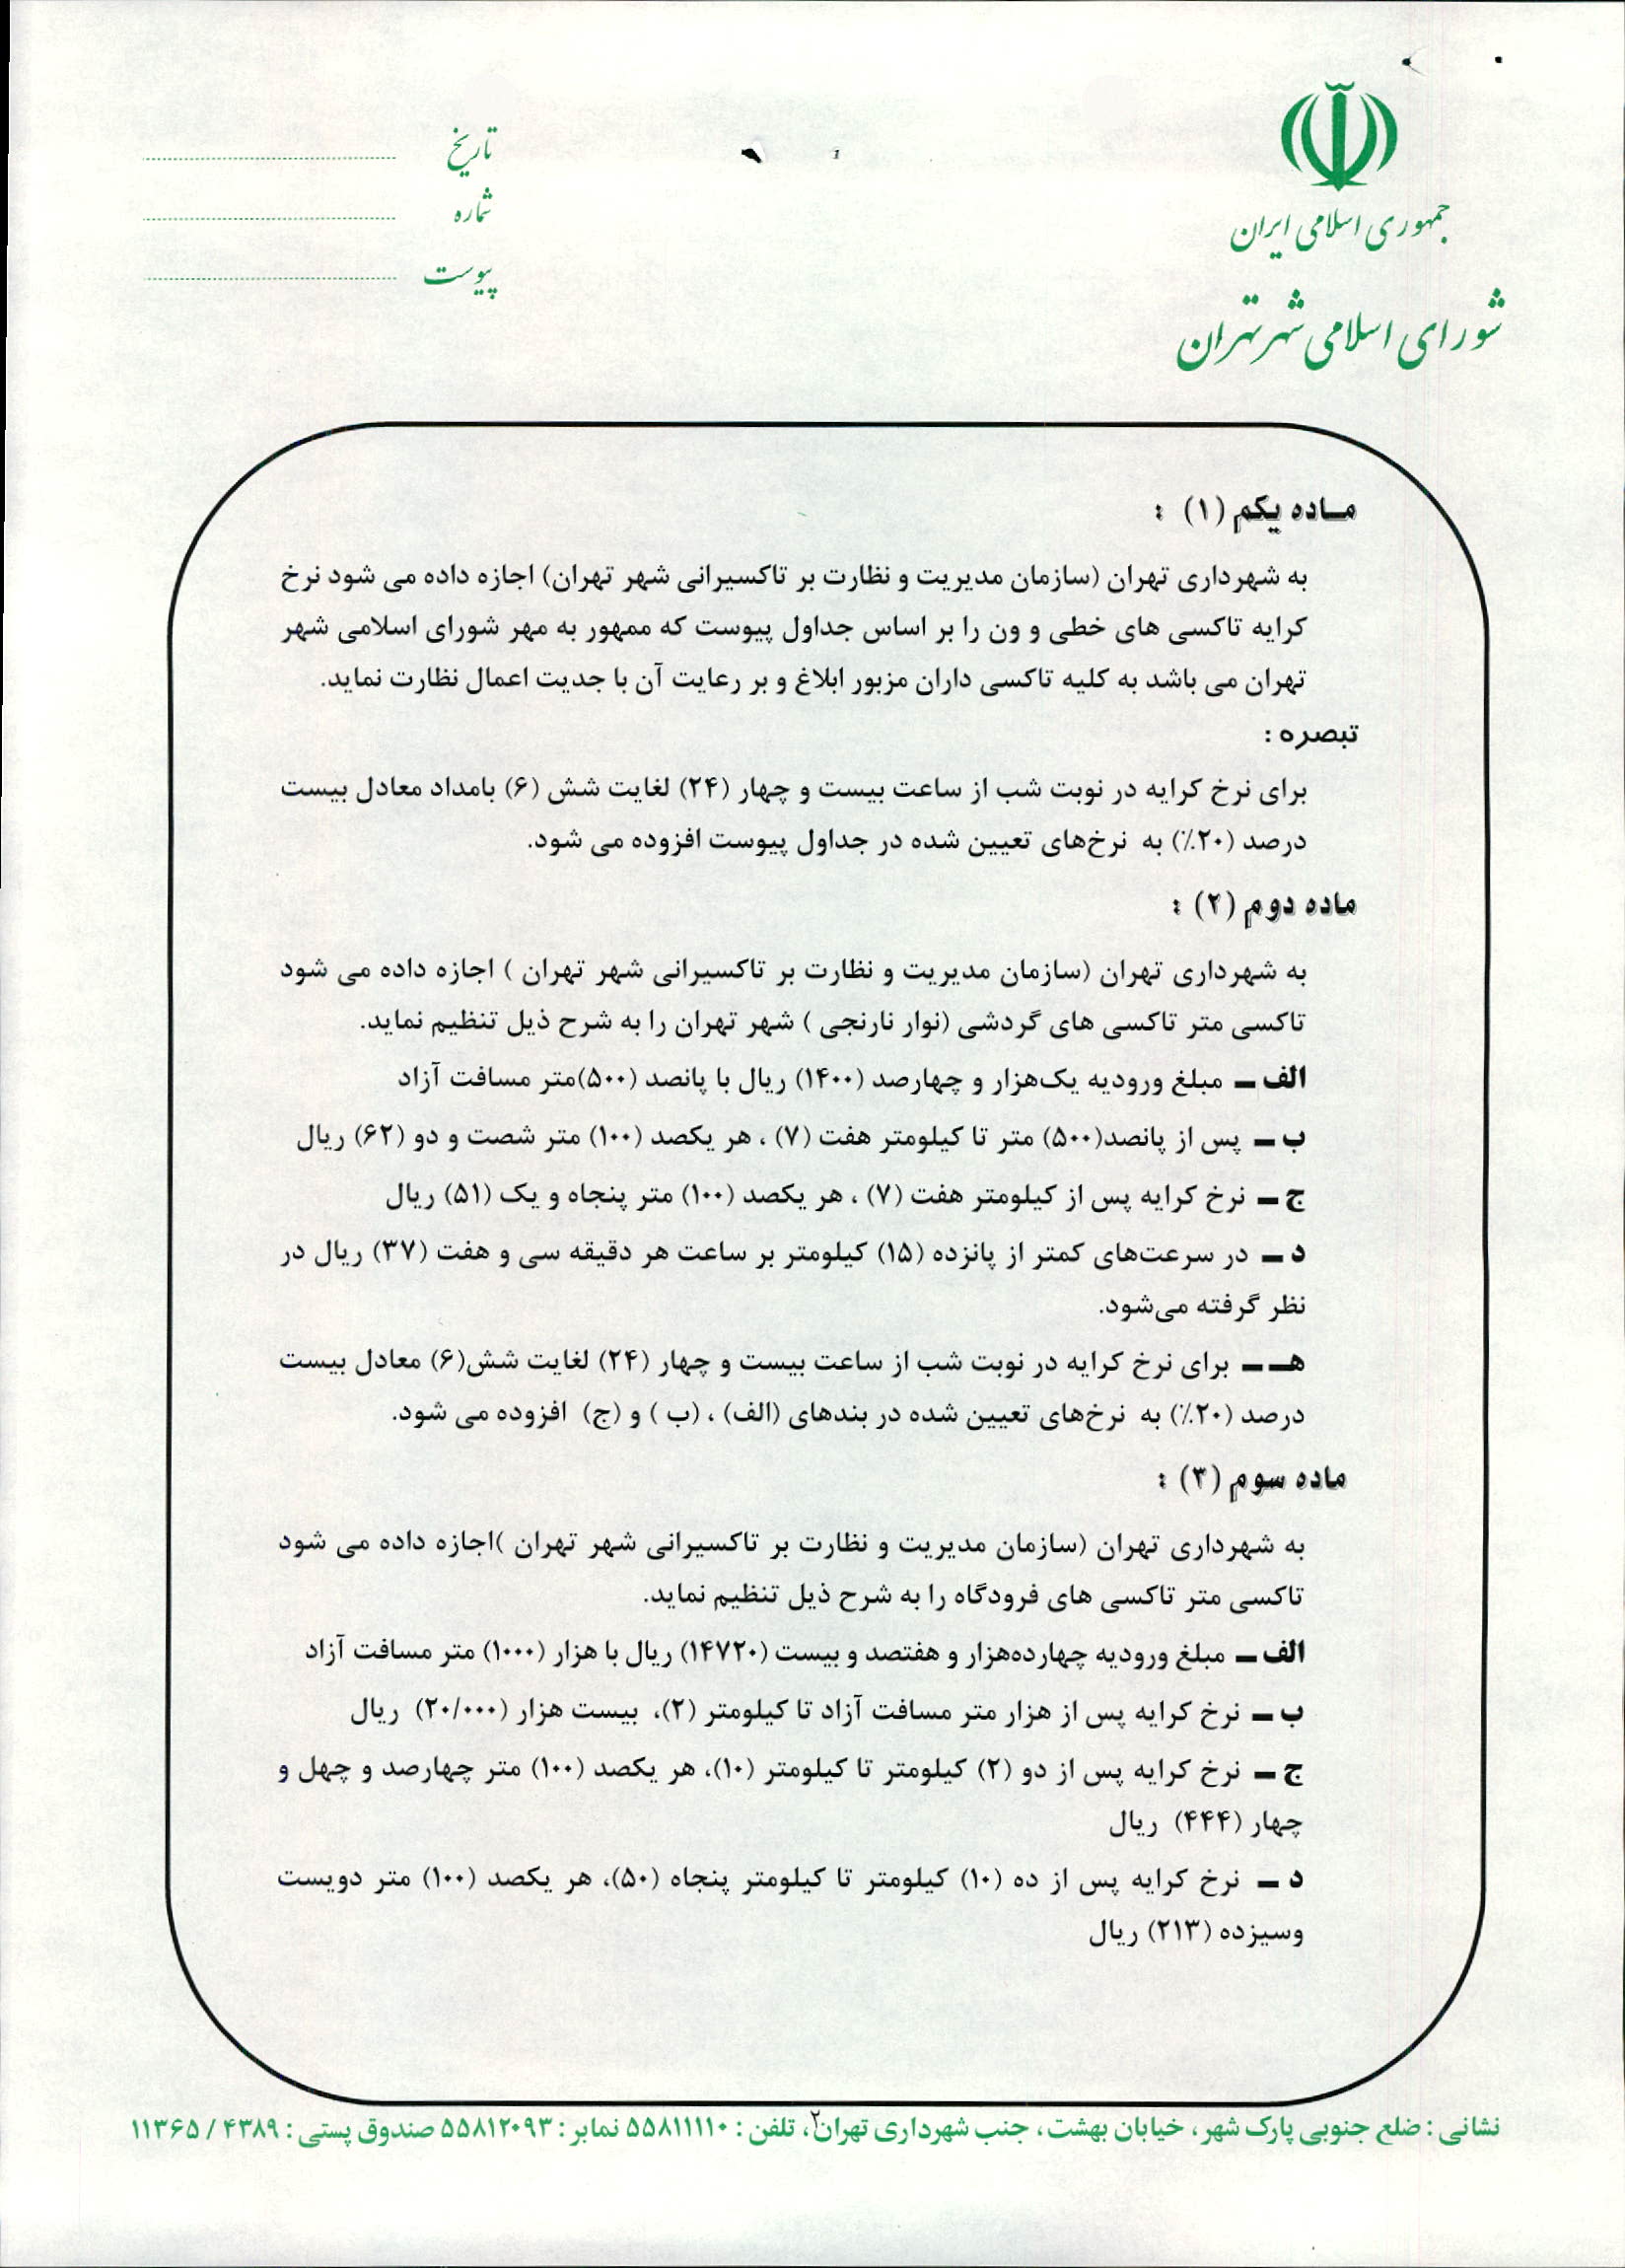 جمهوری اسلامی ایران
شورای اسلامی شهر تهران
تاریخ
شماره
پیوست
مـاده یکم (۱) :
به شهرداری تهران (سازمان مدیریت و نظارت بر تاکسیرانی شهر تهران) اجازه داده می شود نرخ
کرایه تاکسی های خطی و ون را بر اساس جداول پیوست که ممهور به مهر شورای اسلامی شهر
تهران می باشد به کلیه تاکسی داران مزبور ابلاغ و بر رعایت آن با جدیت اعمال نظارت نماید.
تبصره :
برای نرخ کرایه در نوبت شب از ساعت بیست و چهار (۲۴) لغایت شش (۶) بامداد معادل بیست
درصد (۲۰٪) به نرخ‌های تعیین شده در جداول پیوست افزوده می شود.
ماده دوم (۲) :
به شهرداری تهران (سازمان مدیریت و نظارت بر تاکسیرانی شهر تهران ) اجازه داده می شود
تاکسی متر تاکسی های گردشی (نوار نارنجی ) شهر تهران را به شرح ذیل تنظیم نماید.
الف – مبلغ ورودیه یک‌هزار و چهارصد (۱۴۰۰) ریال با پانصد (۵۰۰)متر مسافت آزاد
ب – پس از پانصد(۵۰۰) متر تا کیلومتر هفت (۷) ، هر یکصد (۱۰۰) متر شصت و دو (۶۲) ریال
ج – نرخ کرایه پس از کیلومتر هفت (۷) ، هر یکصد (۱۰۰) متر پنجاه و یک (۵۱) ریال
د – در سرعت‌های کمتر از پانزده (۱۵) کیلومتر بر ساعت هر دقیقه سی و هفت (۳۷) ریال در
نظر گرفته می‌شود.
هـ – برای نرخ کرایه در نوبت شب از ساعت بیست و چهار (۲۴) لغایت شش(۶) معادل بیست
درصد (۲۰٪) به نرخ‌های تعیین شده در بندهای (الف) ، (ب ) و (ج) افزوده می شود.
ماده سوم (۳) :
به شهرداری تهران (سازمان مدیریت و نظارت بر تاکسیرانی شهر تهران )اجازه داده می شود
تاکسی متر تاکسی های فرودگاه را به شرح ذیل تنظیم نماید.
الف – مبلغ ورودیه چهارده‌هزار و هفتصد و بیست (۱۴۷۲۰) ریال با هزار (۱۰۰۰) متر مسافت آزاد
ب – نرخ کرایه پس از هزار متر مسافت آزاد تا کیلومتر (۲)، بیست هزار (۲۰/۰۰۰) ریال
ج – نرخ کرایه پس از دو (۲) کیلومتر تا کیلومتر (۱۰)، هر یکصد (۱۰۰) متر چهارصد و چهل و
چهار (۴۴۴) ریال
د – نرخ کرایه پس از ده (۱۰) کیلومتر تا کیلومتر پنجاه (۵۰)، هر یکصد (۱۰۰) متر دویست
وسیزده (۲۱۳) ریال
۲
نشانی : ضلع جنوبی پارک شهر ، خیابان بهشت ، جنب شهرداری تهران، تلفن : ۵۵۸۱۱۱۱۰ نمابر : ۵۵۸۱۲۰۹۳ صندوق پستی : ۴۳۸۹ / ۱۱۳۶۵